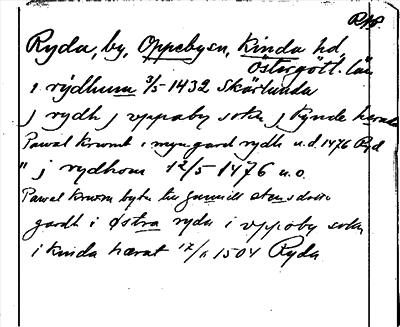 RAP
Ryda, by, Oppebysn, Kinda hd,
Östergötl. län
i rydhum 3/5 1432 Skärlunda
j rydh j vppaby sokn j kynde harade
Pawal i myn gard rydh u.d. 1476 Ryd
" j rydhom 12/5 1476 u.o.
Pawal byta til gunnill
gardh i östra ryda i vppoby sokn
i kinda hærat 1504 Ryda